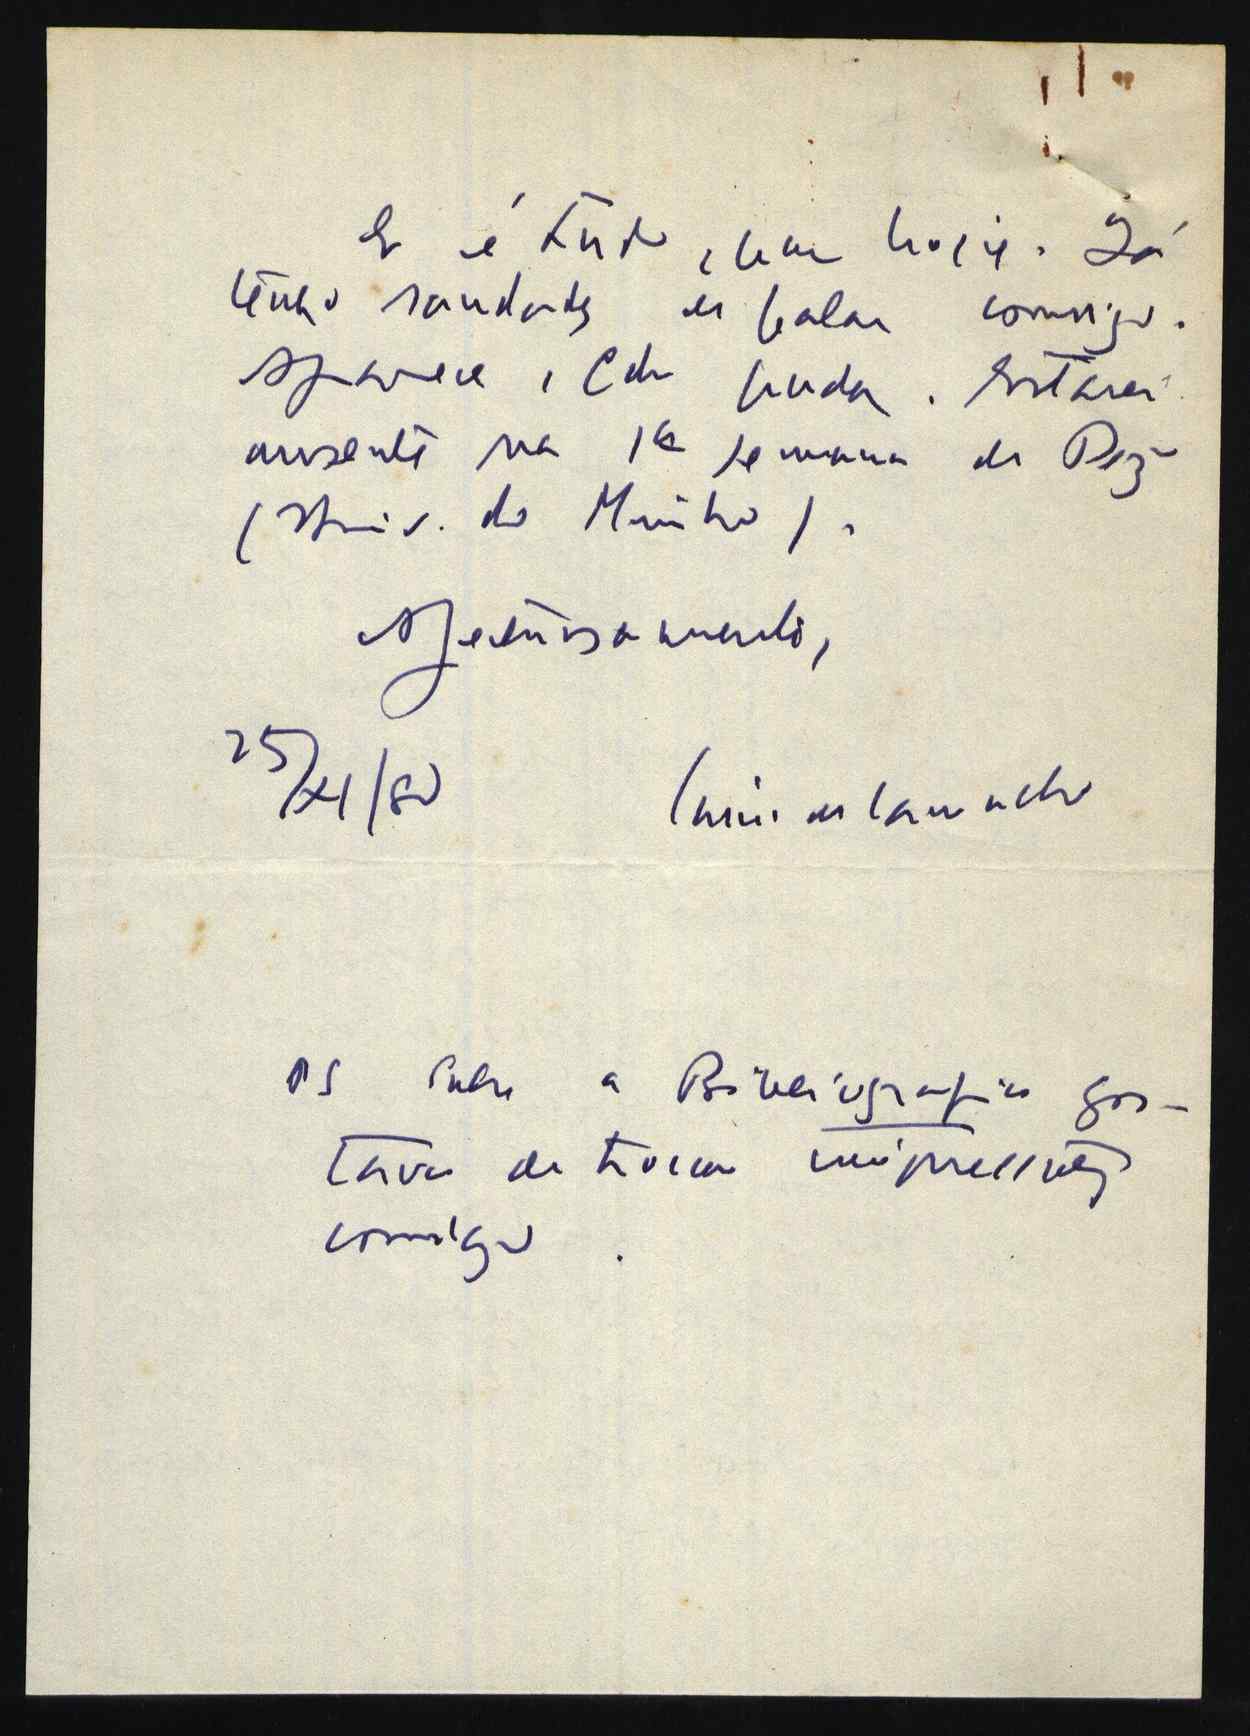 E é tudo, por hoje. Já
tenho saudades de falar consigo.
Apareça, qdo puder. Estarei
ausente na 1ª semana de Dez
(Univ. do Minho).
Afectuosamente,
25/XI/80
PS Sobre a Bibliografia gos-
tava de trocar impressões
consigo.